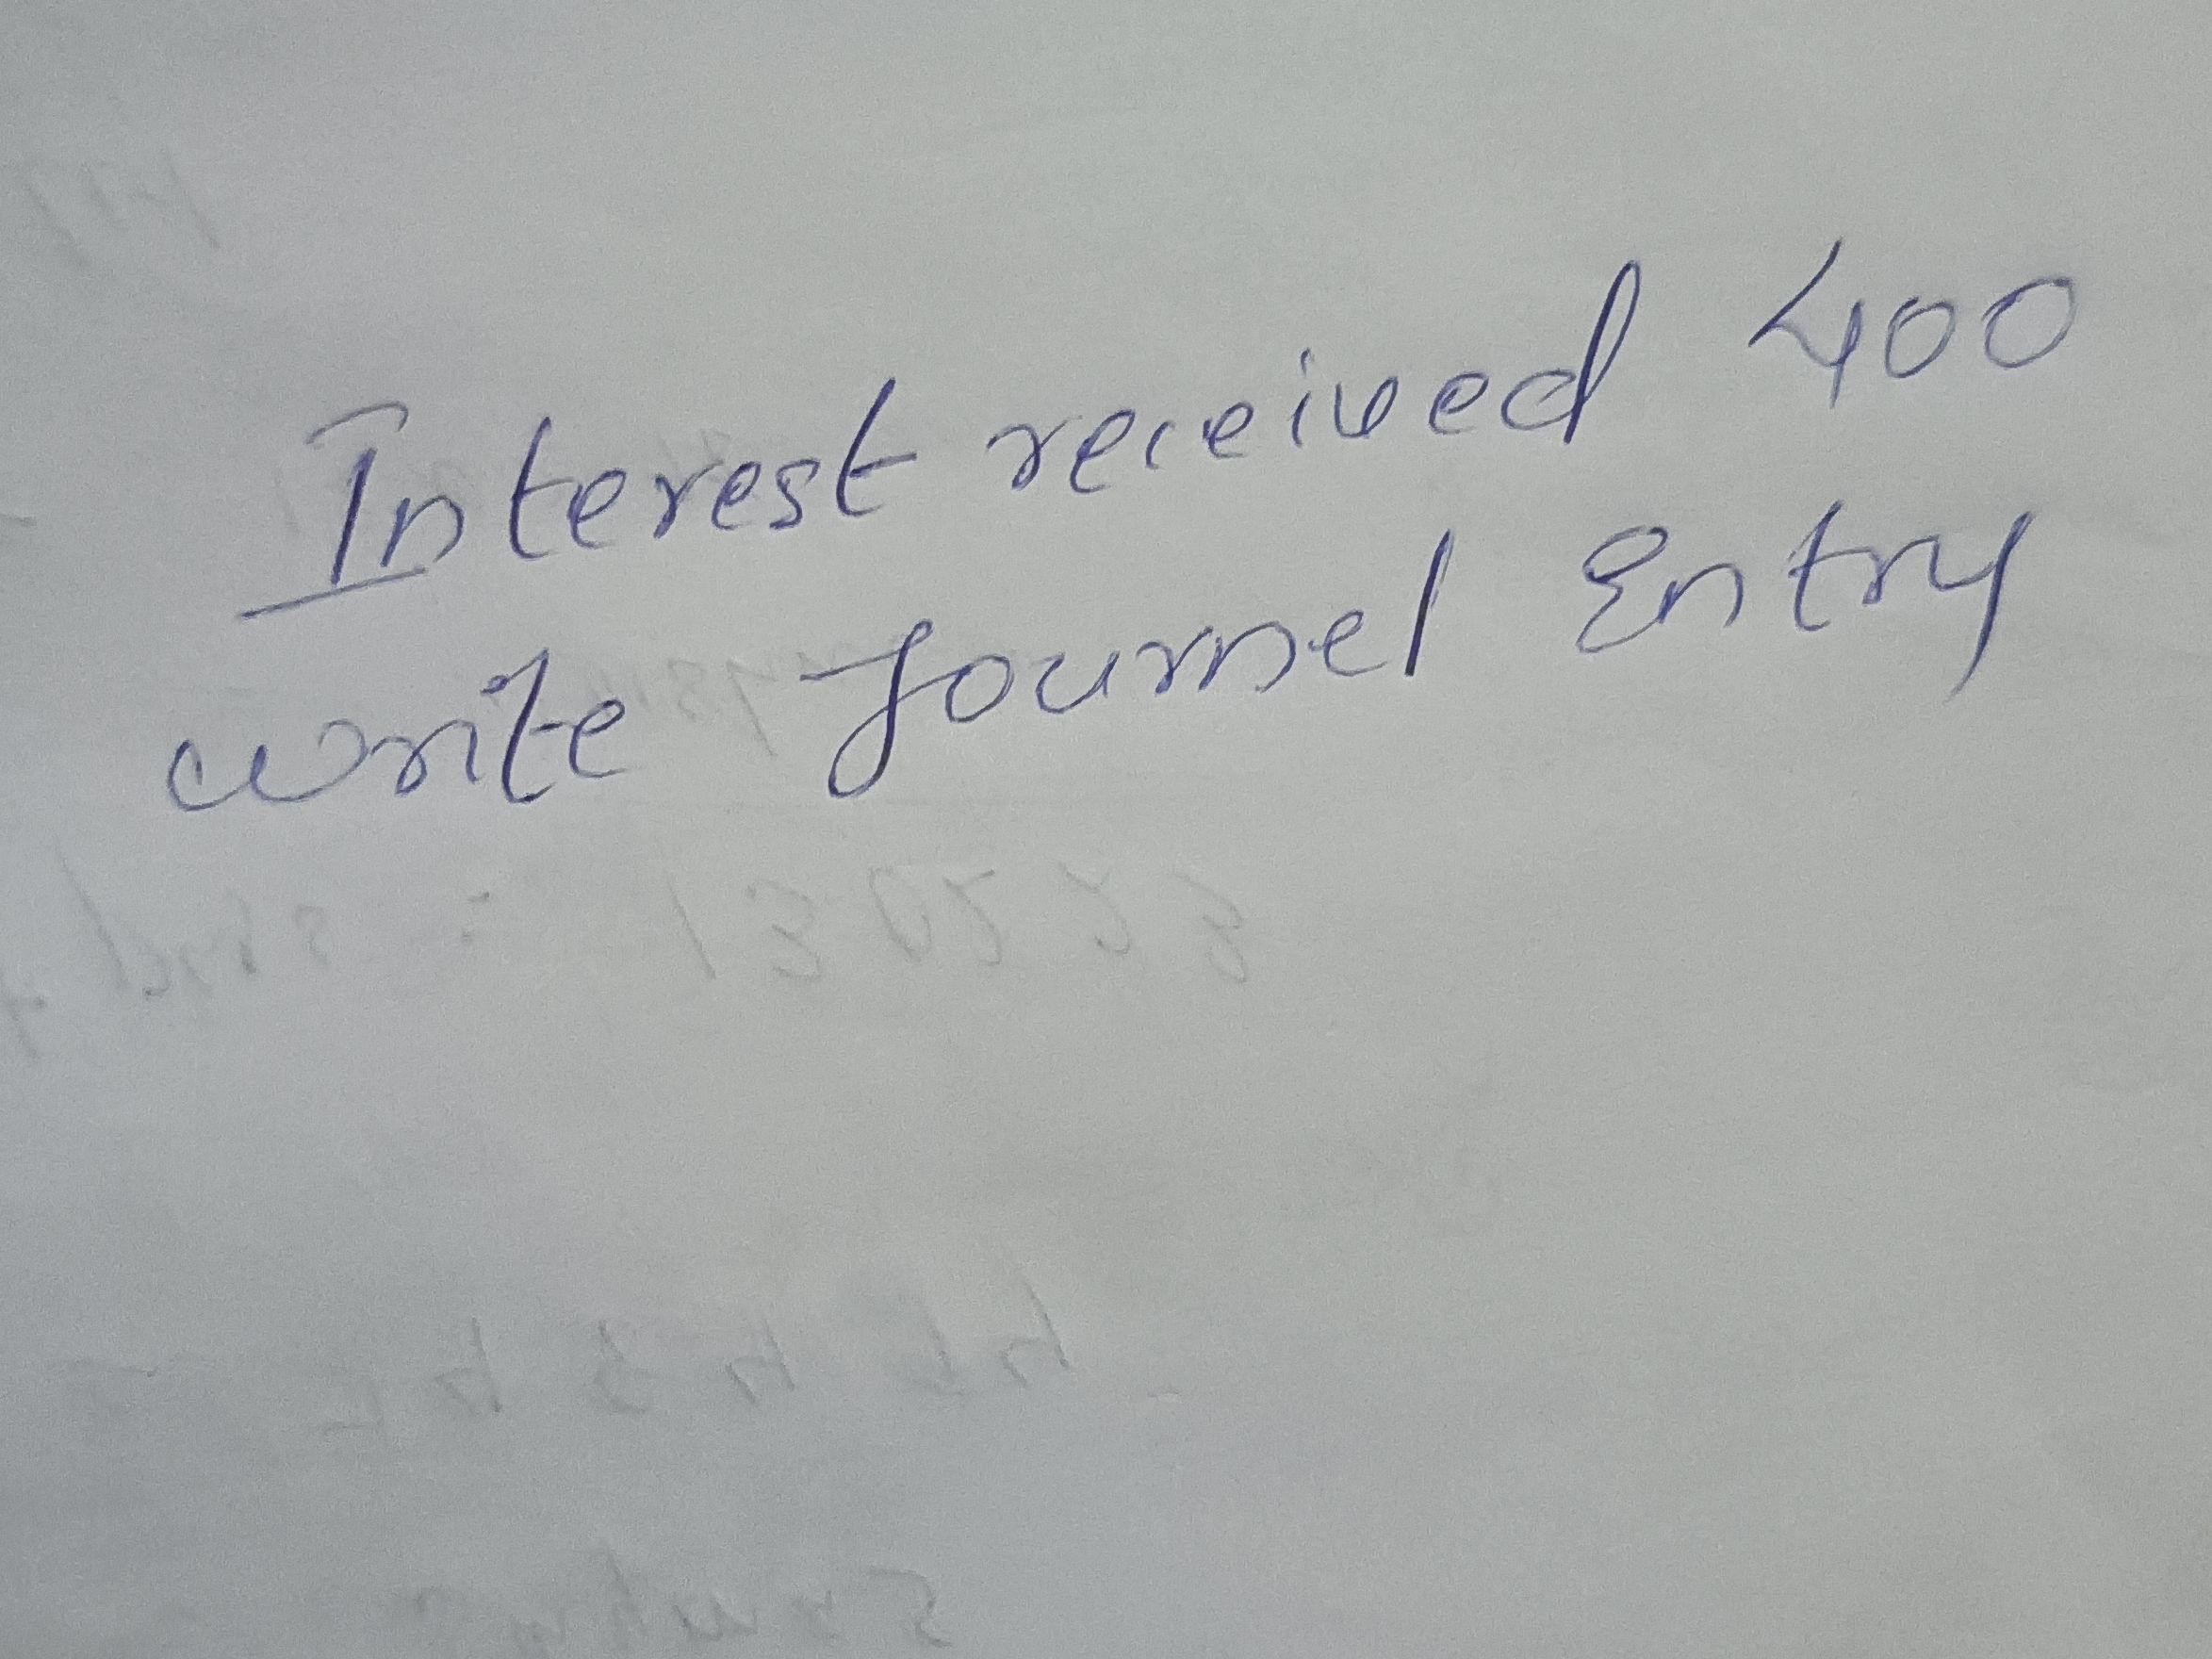 Interest received 400
write Journel Entry